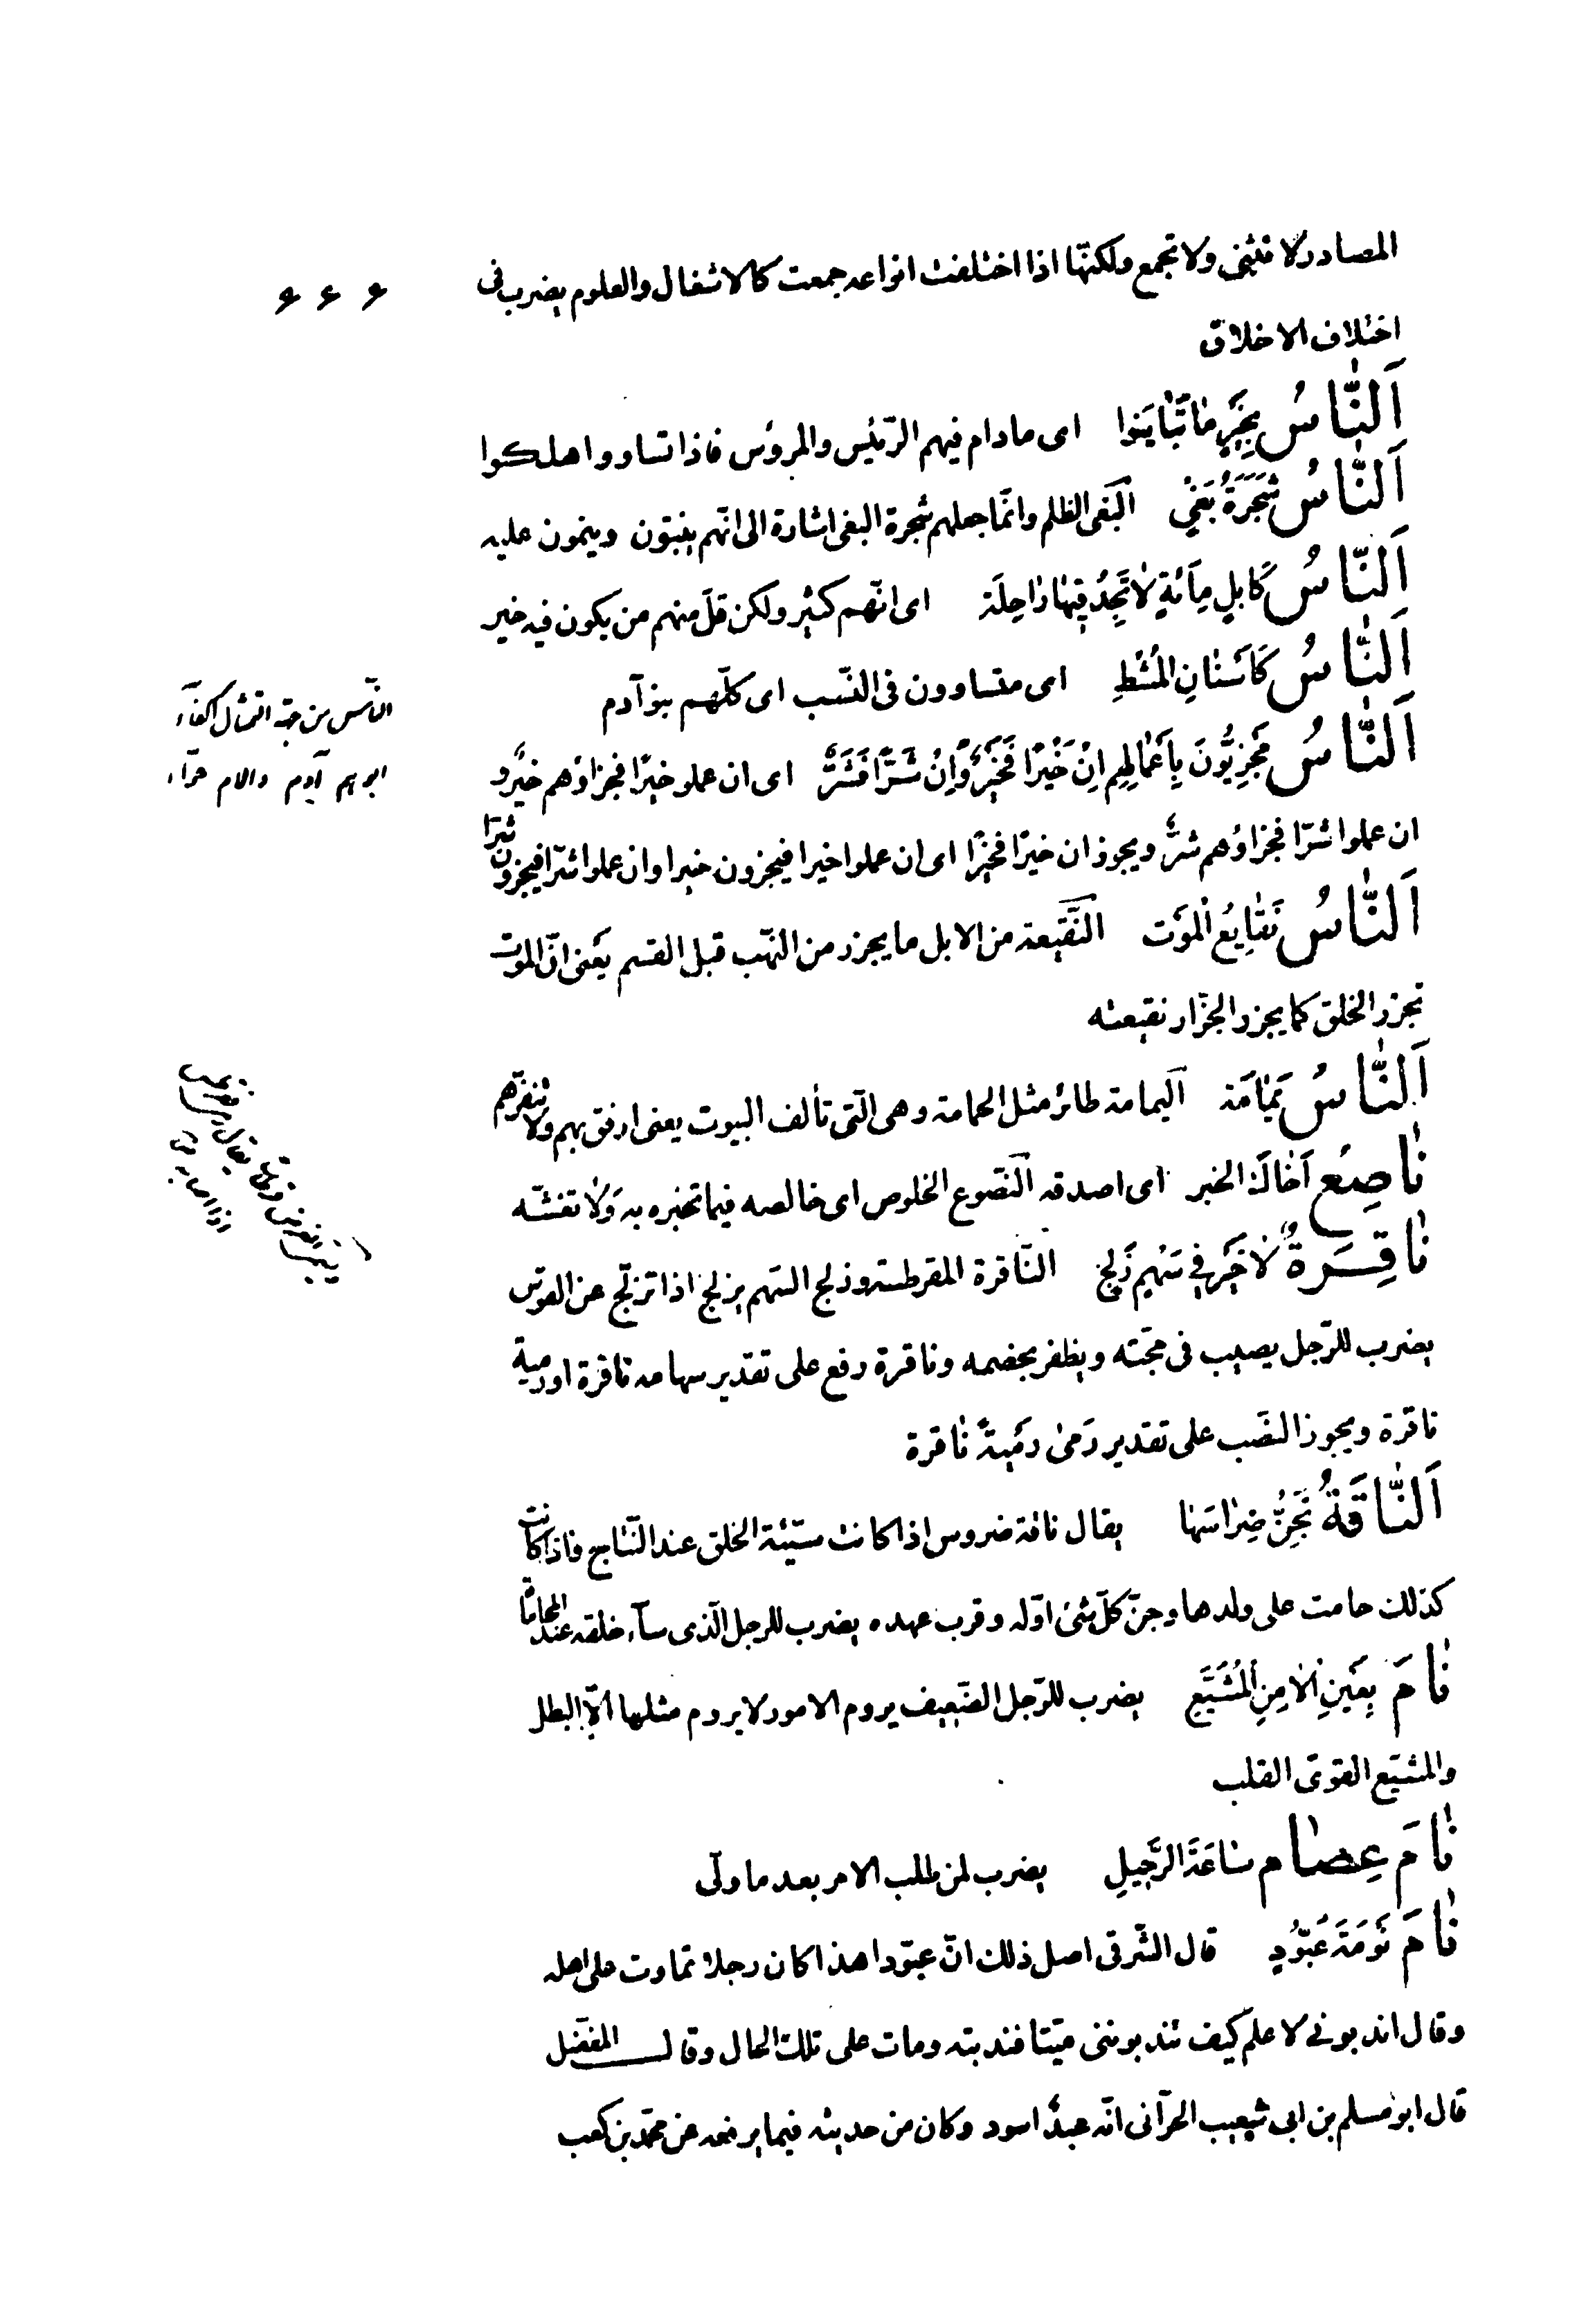 المصادر لا تثنى ولا تجمع ولكنّها اذا اختلفت انواعه جمعت كالاشغال والعلوم يضرب فى
اختلاف الاخلاق
اَلنّٰاسُ بِخَيْرٍ مٰا تَبٰايَنوا اى مادام فيهم الرّئيس والمرؤس فاذا تساووا هلكوا
اَلنّٰاسُ شَجَرَةُ بَغْيٍ اَلبَغى الظلم وانّما جعلهم شجرة البغى اشارة الى انّهم ينبتون وينمون عليه
اَلنّٰاسُ كَابِلٍ مِاَئةٍ لٰا تَجِدُ فِيهٰا رٰاحِلَة اى انّهم كثير ولكن قلّ منهم من يكون فيه خير
اَلنّٰاسُ كَاَسْنٰانِ المُشْطِ اى متساوون فى النّسب اى كلّهم بنو آدم
النّاس من جهة التمثال اكفآء
ابوهم آدم والام حوّاء
اَلنّٰاسُ مَجْزِيُّونَ بِاَعْمٰالِهِم اِنْ خَيْرًا فَخَيْرٌ وَاِنْ شَرًّا فَشَرٌّ اى ان عملو خيرًا فجزاؤهم خيرٌ و
ان عملوا شرّا فجزاؤهم شرٌّ ويجوز ان خيرًا فخيرًا اى ان عملوا خيرا فيجزون خيرا وان عملوا شرّا فيجزون شرّا
اَلنّٰاسُ نَقٰايِعُ الْمَوْت النَّقيعة من الابل ما يجزر من النّهب قبل القسم يعَنى انّ الموت
تجزر الخلق كما يجزر الجزّار نقيعته
اَلنّٰاسُ يَمٰامَة اَليمامة طائر مثل الحمامة وهى الّتى تألف البيوت يعنى ارفق بهم ولا تنفرّهم
نٰاصِع اَخٰاكَ الخبر اى اصدقه النّصوع الخلوص اى خالصه فيما تخبره به وَلا تغشّه
نٰاقِرَةٌ لٰا خَيْرَ فِي سَهْمٍ زَلِج النّاقرة المقرطسة وزلج السّهم يزلج اذا تزلّج عن القوس
يضرب للرّجل يصيب فى حجّته ويظفر بخصمه وناقرة رفع على تقدير سهامه ناقرة او رمية
ناقرة ويجوز النصَب على تقدير رَمىٰ رمْيةً نٰاقرة
اَلنّٰاقَةُ بِجِنِّ ضِرٰاسَهٰا يقال ناقة ضروس اذا كانت سيّئة الخلق عند النّتاج فاذا كانت
كذلك حامت على ولدها وجنّ كلّ شئ اوّله وقرب عهده يضرب للرجل الّذى سآء خلقه عند المحاماة
نٰامَ بِعَيْنِ الْاٰمِنِ الْمُشَيَّعِ يضرب للرّجل الضّعيف يروم الامور لا يروم مثلها الّا البطل
والمشيّع القوىّ القلب
نٰامَ عِصٰام سٰاعَةَ الرَّحِيلِ يضرب لمن طلب الامر بعد ما ولّى
نٰامَ نَوْمَةَ عَبُّودٍ قال الشّرقى اصل ذلك انّ عبّودا هذا كان رجلا تماوت على اهله
وقال اندبونى لاعلم كيف تندبوننى ميّتا فندبته ومات على تلك الحال وقال المفضّل
قال ابو مسلم بن ابى شعيب الحرّانى انّه عبدٌ اسود وكان من حديثه فيما يرفعه عن محمّد بن كعب